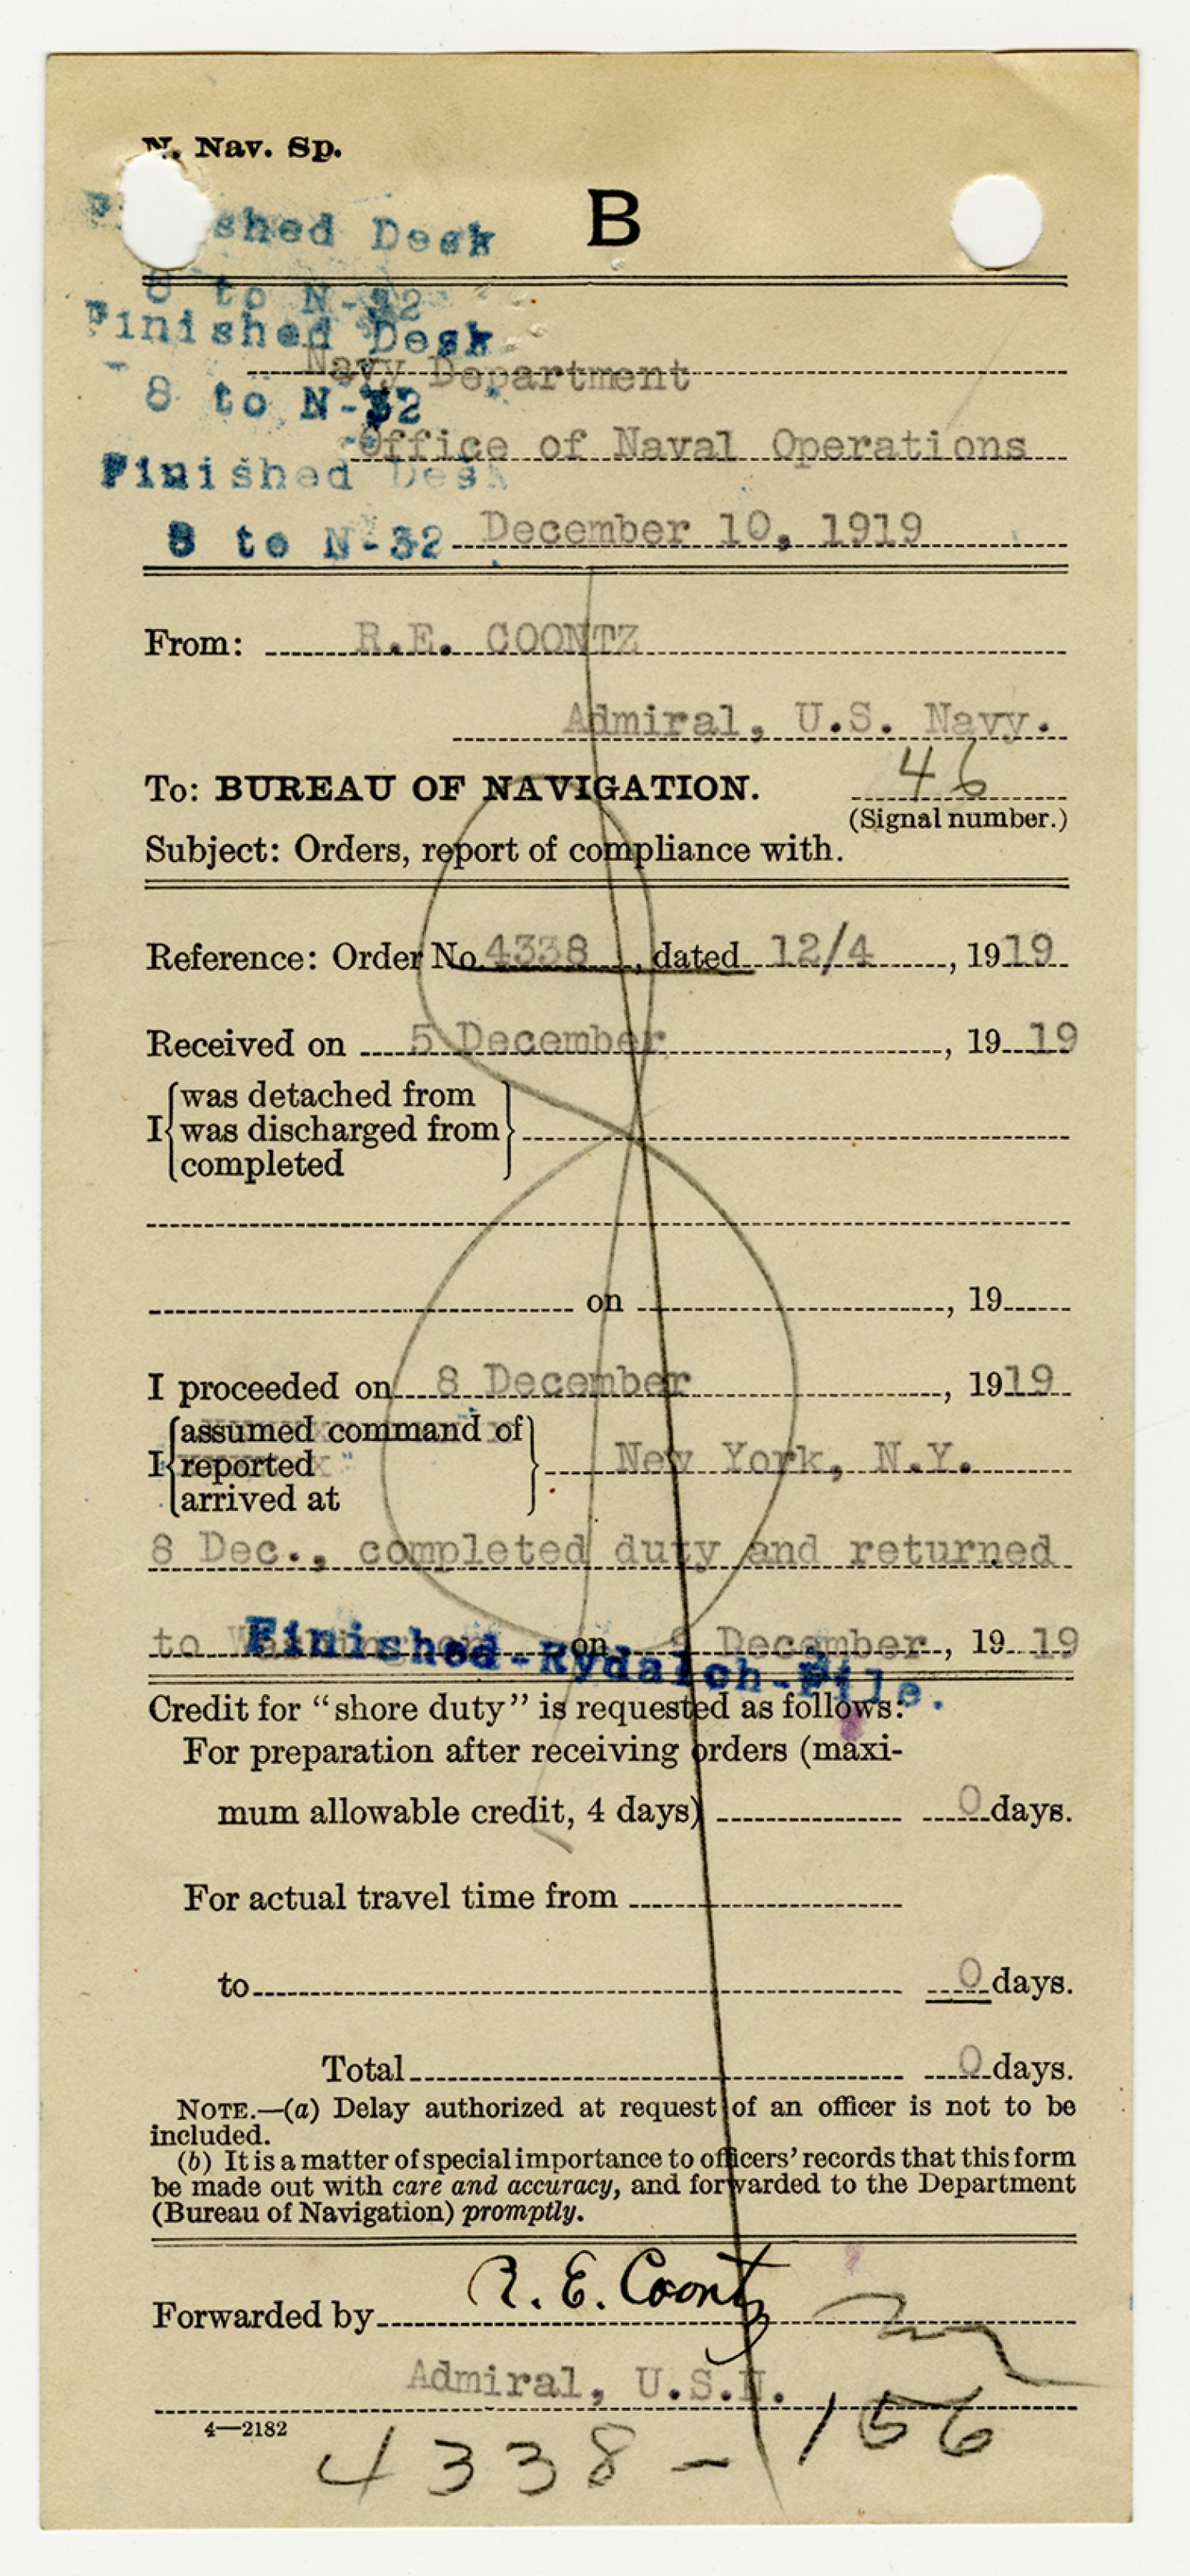 N. Nav. Sp.
B
Finished Desk
8 to N-32
Finished Desk
Navy Department
8 to N-32
Office of Naval Operations
Finished Desk
8 to N-32
December 10, 1919
From: R.E. COONTZ
Admiral, U.S. Navy.
46
To: BUREAU OF NAVIGATION.
(Signal number.)
Subject: Orders, report of compliance with.
Reference: Order No 4338, dated 12/4, 1919
Received on 5 December, 19 19
I {was detached from
was discharged from
completed}
on , 19
I proceeded on 8 December, 1919
I {assumed command of
reported
arrived at} New York, N.Y.
8 Dec., completed duty and returned
to Washington on December, 19 19
Finished-File.
Credit for “shore duty” is requested as follows:
For preparation after receiving orders (maxi-
mum allowable credit, 4 days) 0 days.
For actual travel time from
to 0 days.
Total 0 days.
NOTE.—(a) Delay authorized at request of an officer is not to be
included.
(b) It is a matter of special importance to officers’ records that this form
be made out with care and accuracy, and forwarded to the Department
(Bureau of Navigation) promptly.
Forwarded by R. E. Coontz
Admiral, U.S.N.
4—2182
4338-156